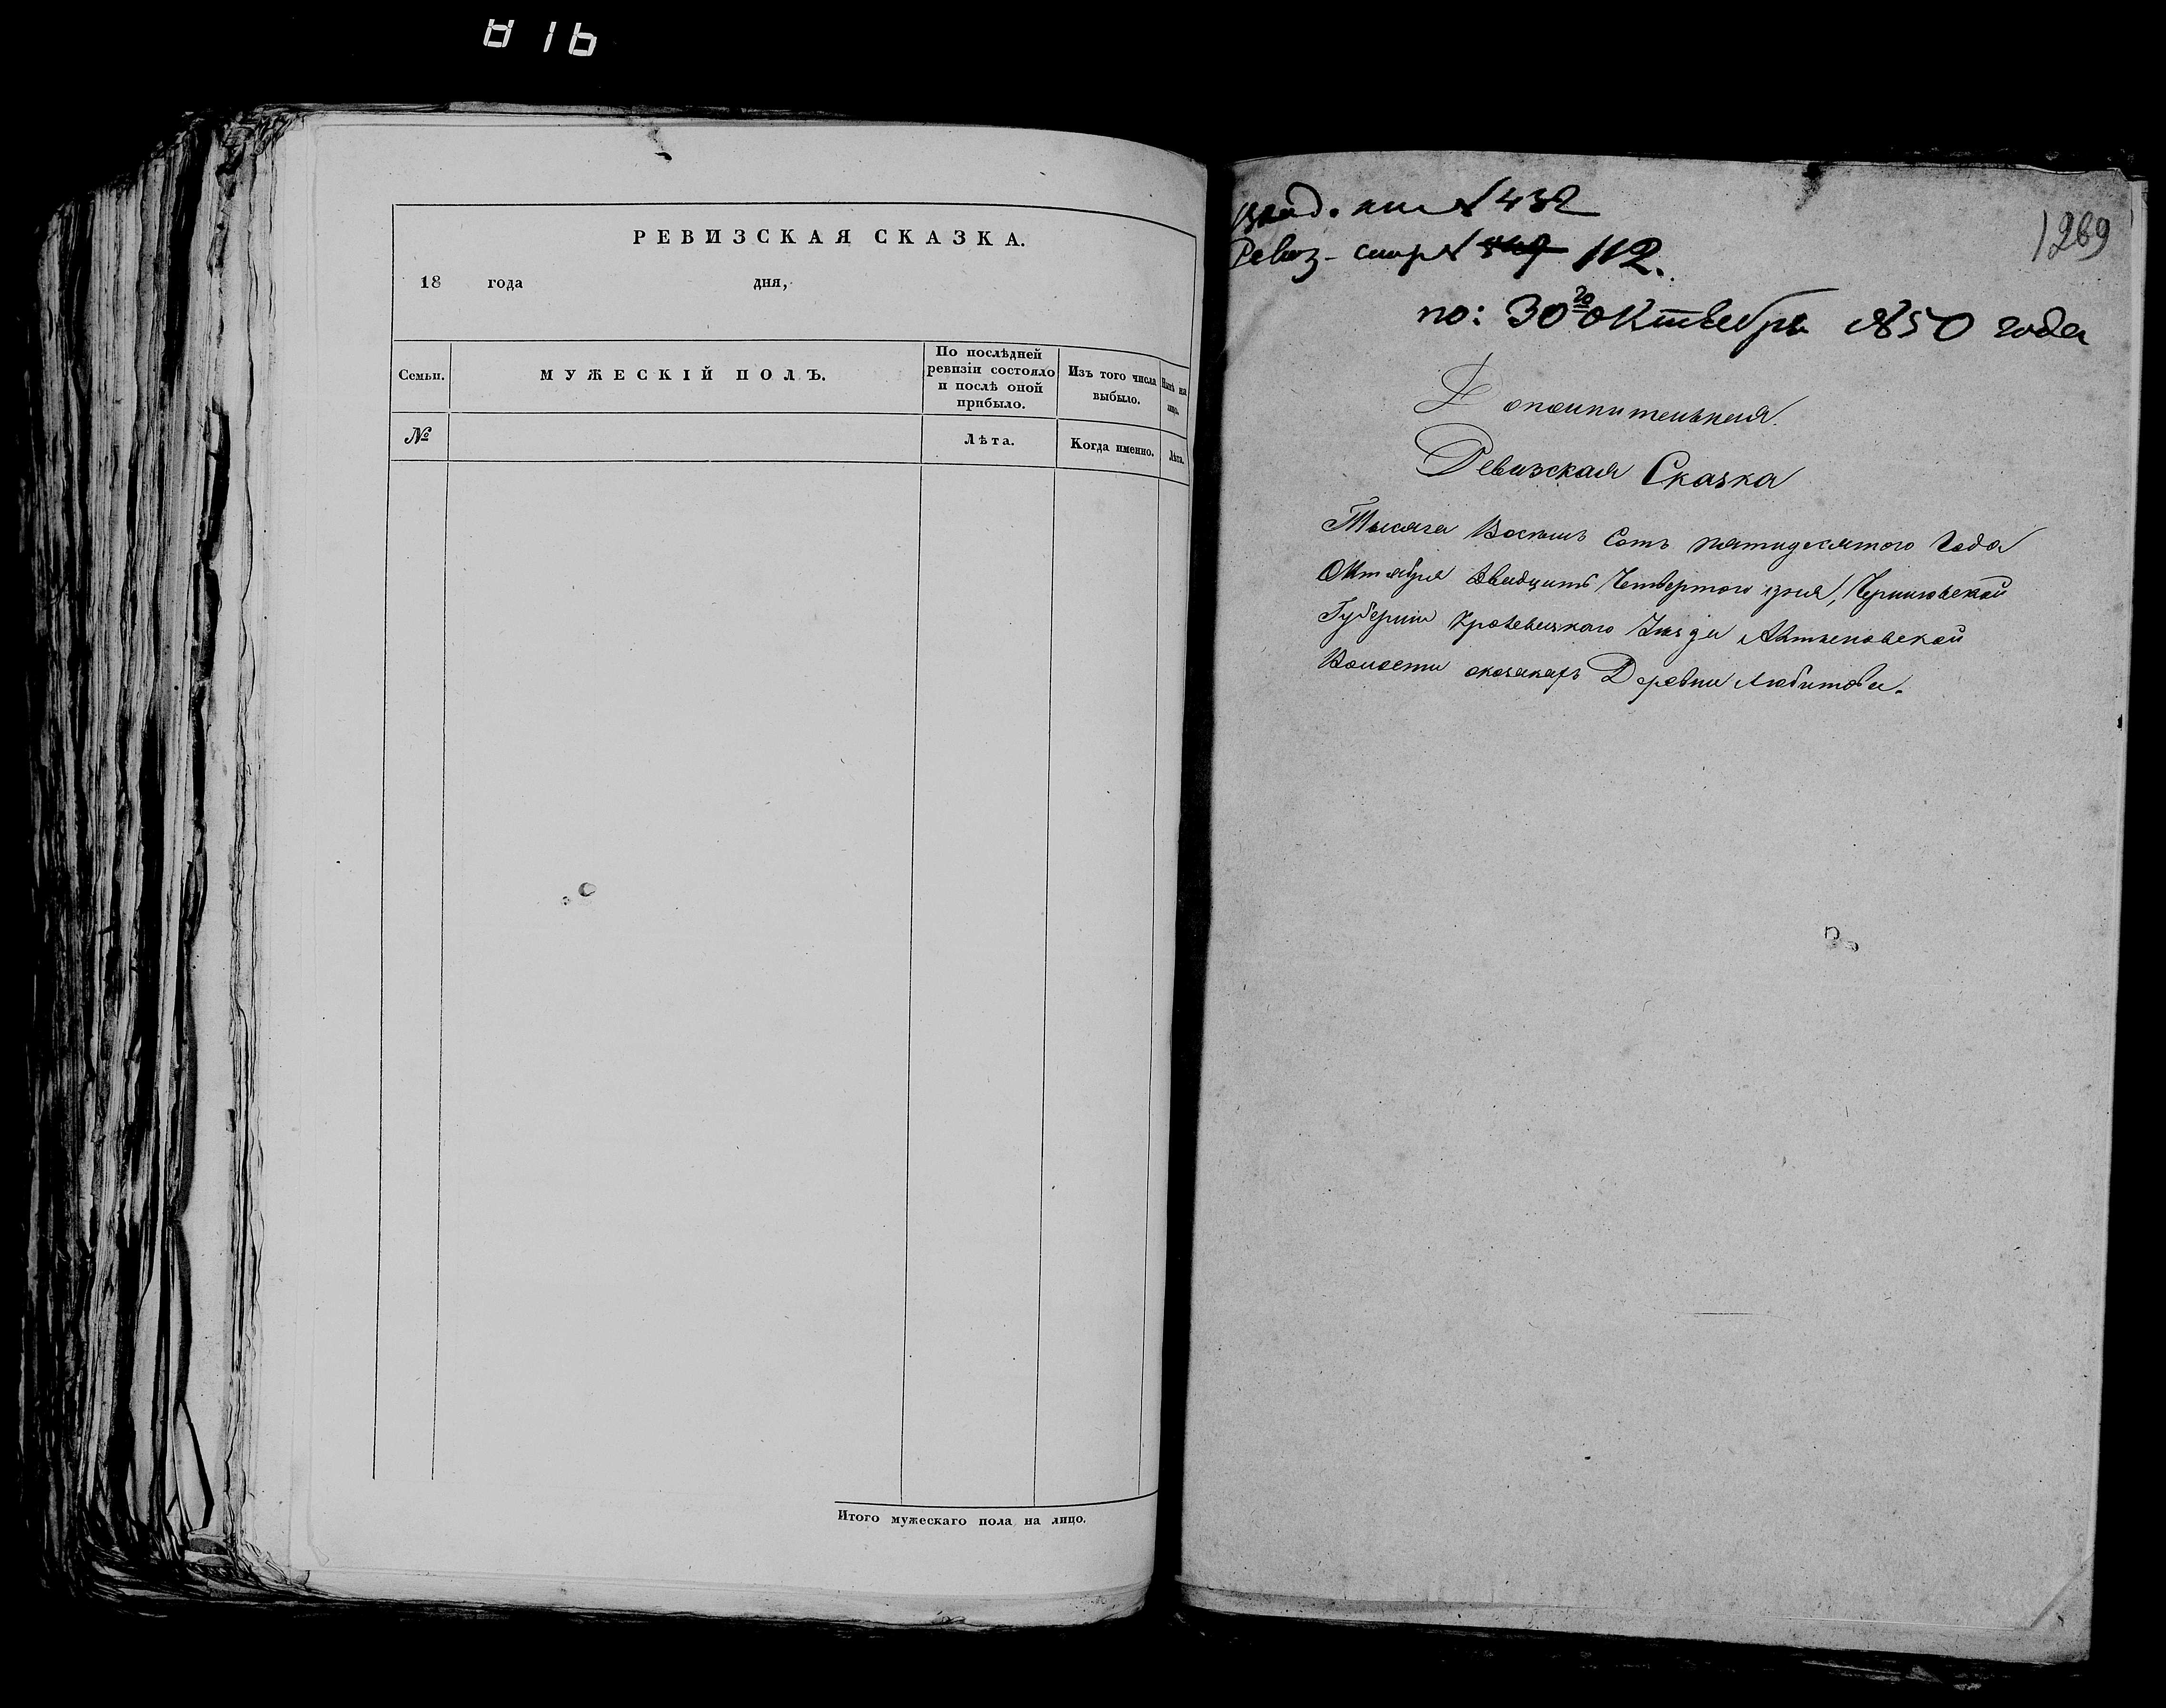 816
РЕВИЗСКАЯ СКАЗКА.
18 года дня,
Семьи.
МУЖЕСКІЙ ПОЛЪ.
По послѣдней
ревизіи состояло
и послѣ оной
прибыло.
Изъ того числа
выбыло.
Нынѣ на
лицо.
№
Лѣта.
Когда именно.
Лѣта.
Итого мужескаго пола на лицо.
№ 432
Ревиз. № 112.
1269
по: 30го Октебря 1850 года
Дополнительная.
Ревизская Сказка
Тысяча Восемь Сотъ пятидесятого Года
Октября двадцать Четвертого дня, Черниговской
Губернии Кролевецкаго Уезда Алтыновской
Волости оказакахъ Деревни Любитова.